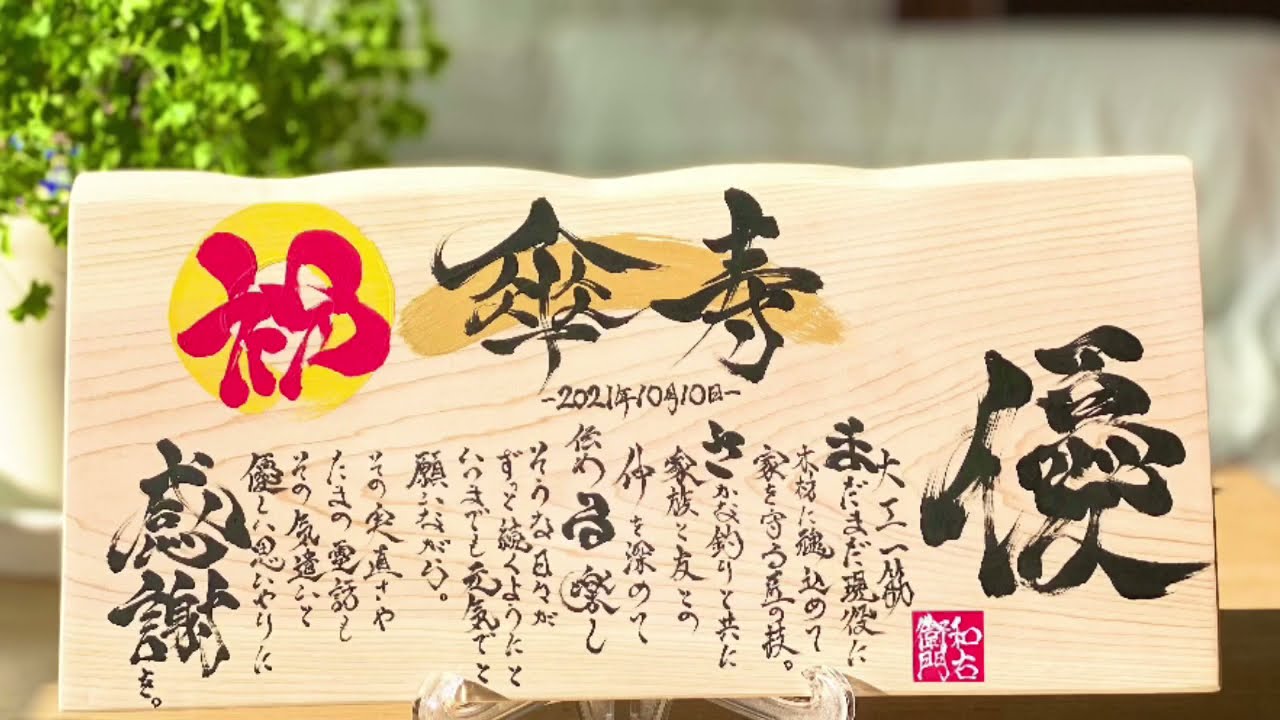 祝
傘寿
-2021年10月10日-
優
大工一筋
まだまだ現役に
木材に魂込めて
家を守る匠の技。
さかな釣りと共に
家族と友との
仲を深めて
伝わる楽し
そうな日々が
ずっと続くようにと
いつまでも元気でと
願いながら。
その実直さや
たまの電話も
その気遣いと
優しい思いやりに
感謝を。
和右
衛門